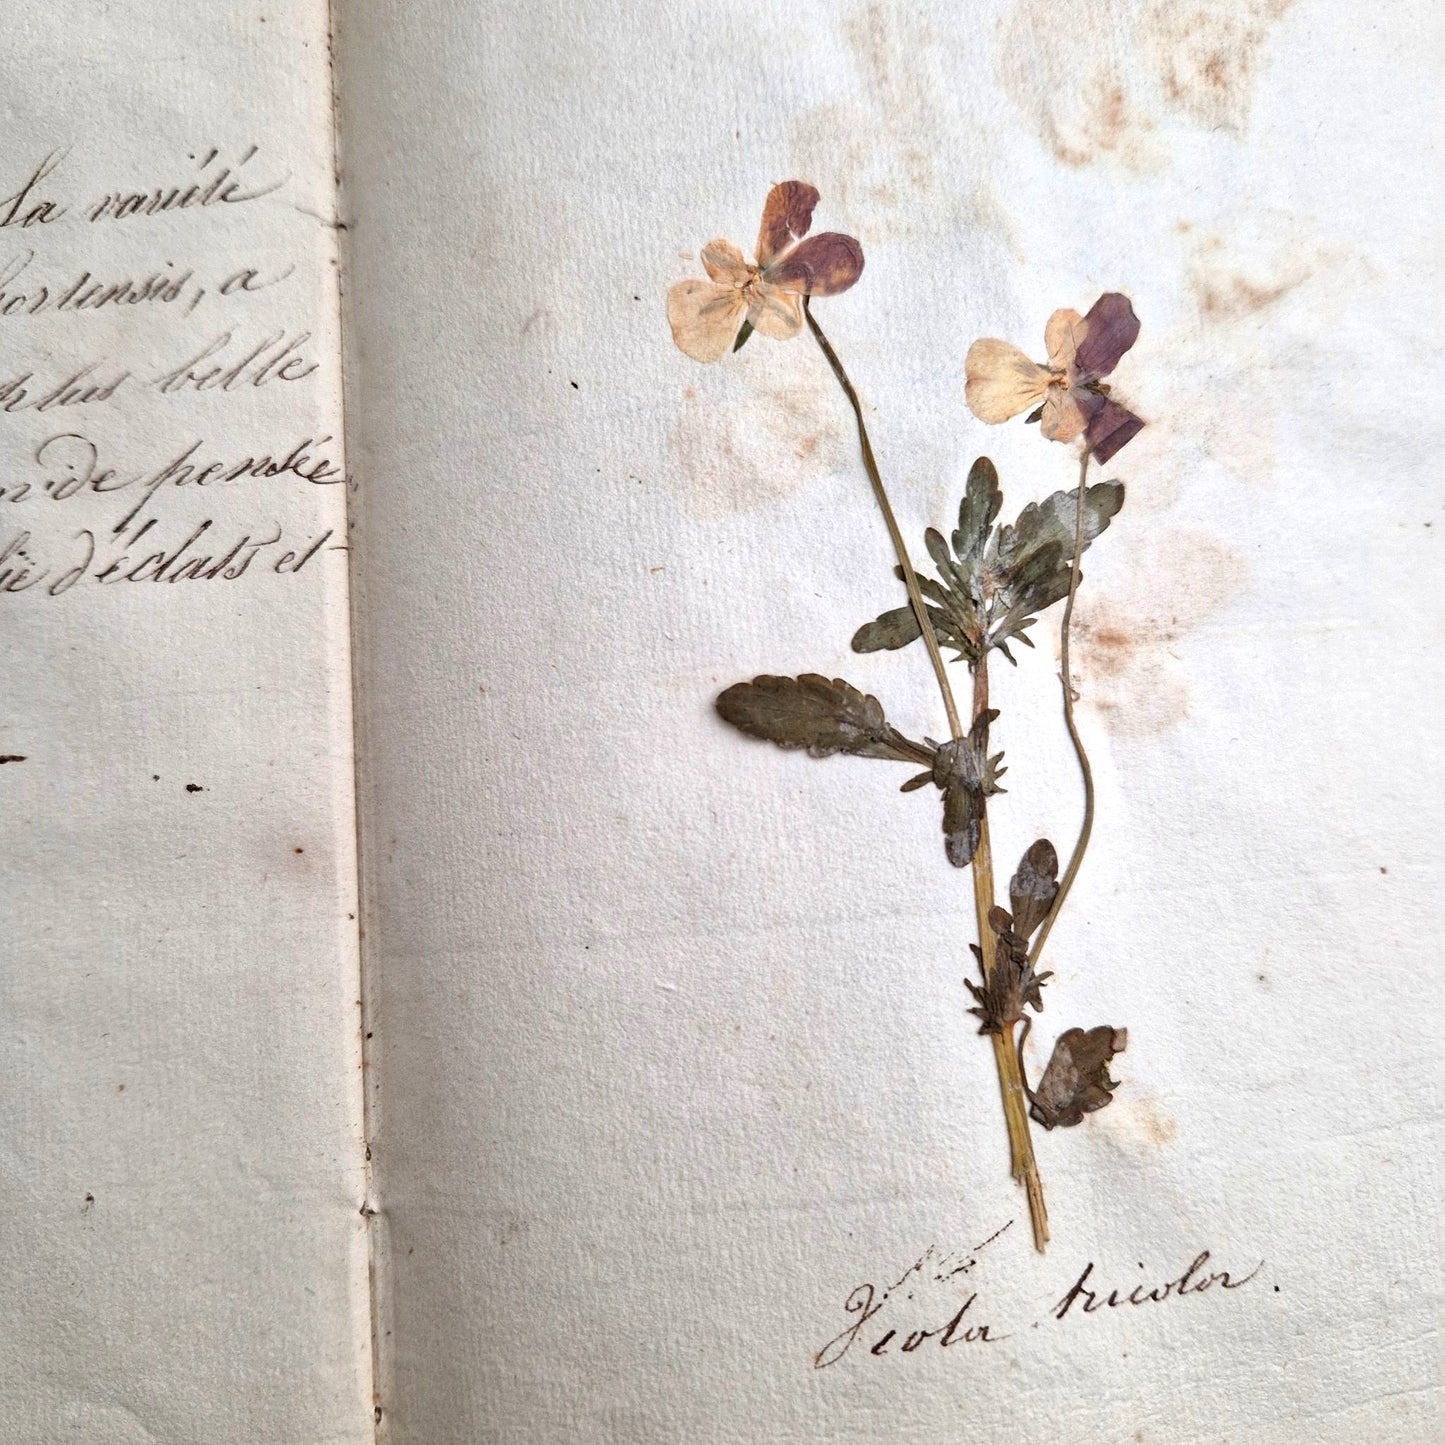 La variété
hortensis, a
plus belle
de pensée,
d'éclats et
Viola tricolor.